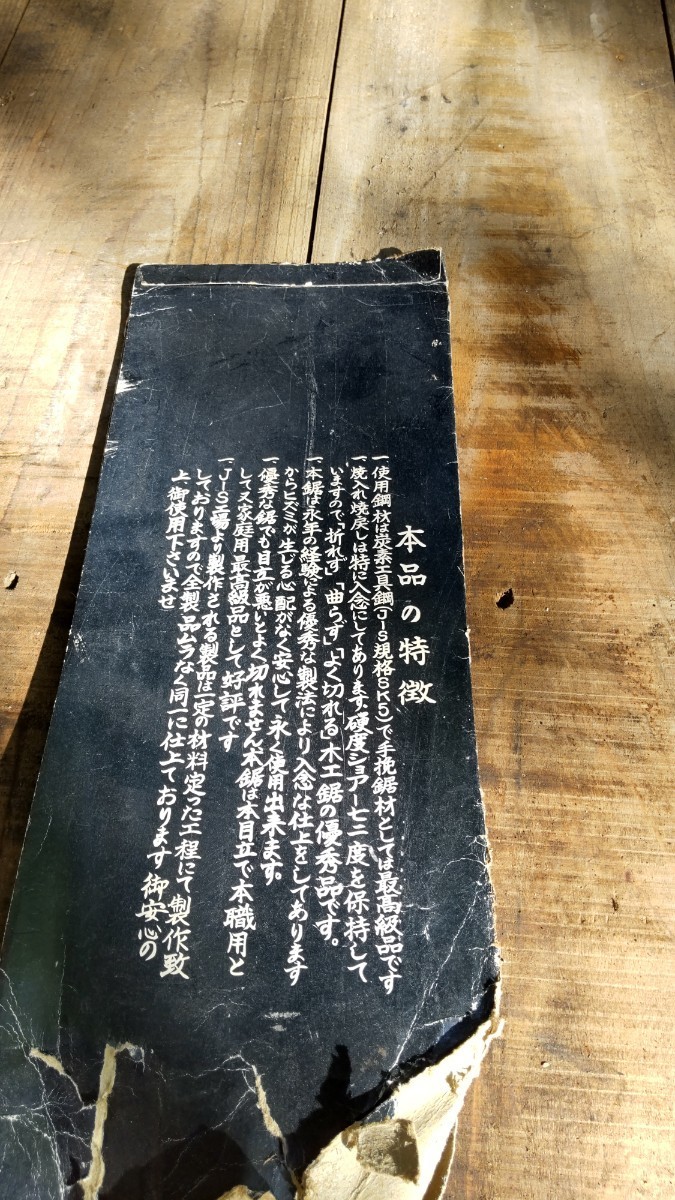 本品の特徴
一、使用鋼材は炭素工具鋼(JIS規格SK5)で手挽鋸材としては最高級品です
一、焼入れ焼戻しは特に入念にしてあります。硬度ショアー七二度を保持して
いますので「折れず」「曲らず」「よく切れる」木工鋸の優秀品です。
一、本鋸は永年の経験による優秀な製法により入念な仕上をしてあります
からヒズミが生じる心配がなく安心して永く使用出来ます
一、優秀な鋸でも目立が悪いとよく切れません本鋸は本目立で本職用と
して又家庭用最高級品として好評です
一、JIS工場より製作される製品は一定の材料定った工程にて製作致
しておりますので全製品ムラなく同一に仕上ております御安心の
上、御使用下さいませ